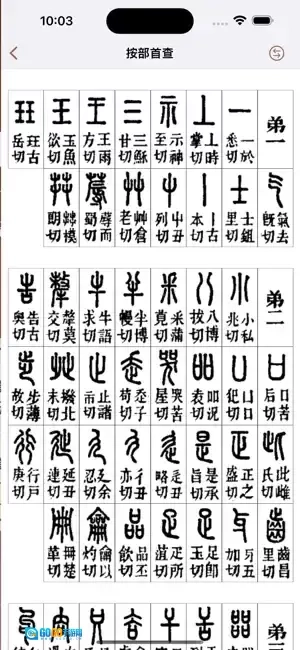 10:03
按部首查
弟一
一於悉切
丄時掌切
示神至切
三穌甘切
王雨方切
玉魚欲切
玨古岳切
气去旣切
士鉏里切
丨古本切
屮丑列切
艸倉老切
蓐而蜀切
茻模朗切
弟二
小私兆切
八博拔切
釆蒲莧切
半博幔切
牛語求切
犛莫交切
告古奧切
口苦后切
凵口犯切
吅況袁切
哭苦屋切
走子苟切
止諸市切
癶北末切
步薄故切
此雌氏切
正之盛切
是承旨切
辵丑略切
彳丑亦切
廴余忍切
㢟丑連切
行戶庚切
齒昌里切
牙五加切
足即玉切
疋所菹切
品丕飲切
龠以灼切
冊楚革切